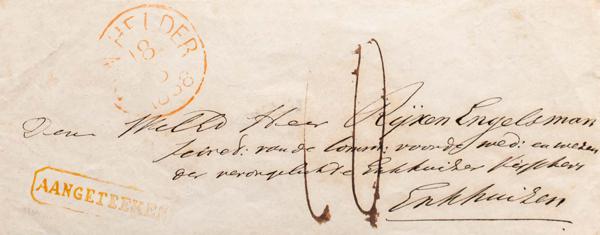 HELDER
18
1858
Den WelEd Heer Rijken Engelsman
secret: van de Comm: voor de wed: en weezen
der verongelukte Enkhuizer Visschers
Enkhuizen
10
AANGETEEKEND